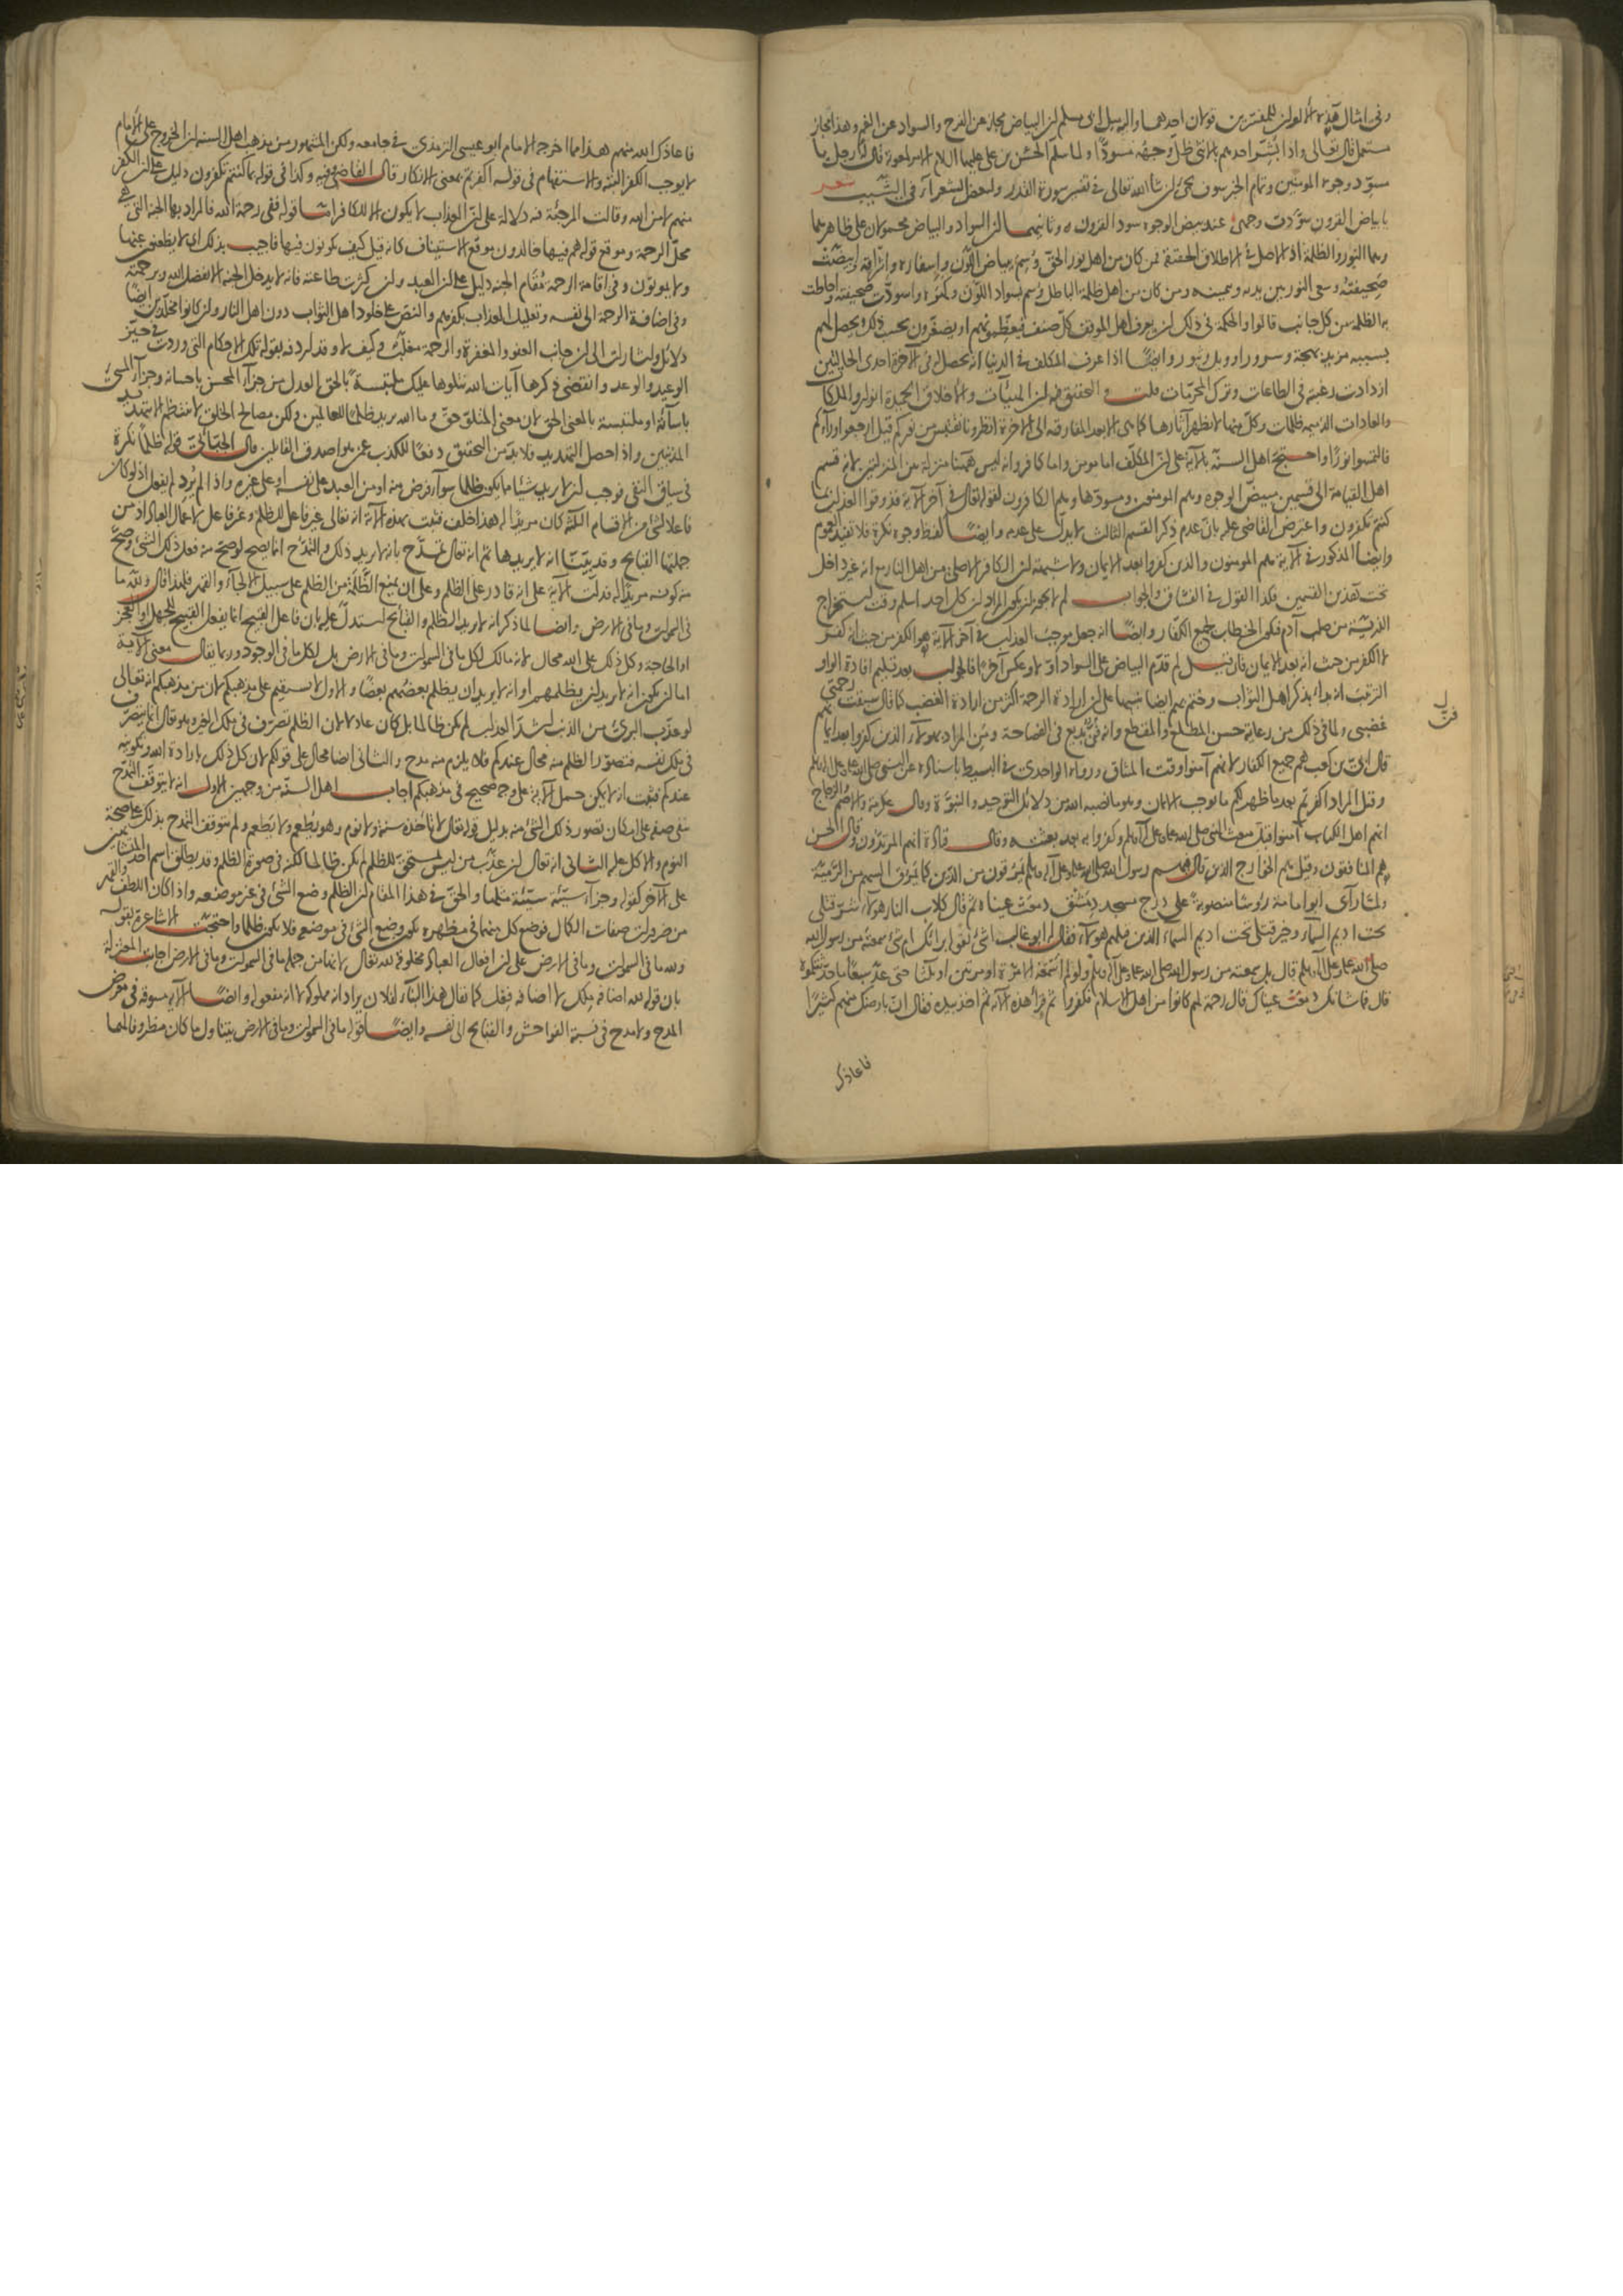 وفي امثال هذه الالوان للمفسرين قولان احدهما واليه ميل ابي مسلم ان البياض مجاز عن الفرح والسواد عن الغم وهذا مجاز
مستعمل قال تعالى واذا بشر احدهم بالانثى ظل وجهه مسودا ولما سلم الحسن بن علي عليهما السلام الامر لمعوية قال له رجل يا
مسود وجوه المومنين وتمام الخبر سوف يجئ ان شا الله تعالى في تفسير سورة القدر ولبعض الشعرآء في الشيب شعر
يا بياض القرون سودت وجهي عند بيض الوجوه سود القرون وثانيهما ان السواد والبياض محمولان على ظاهرهما
وهما النور والظلمة اذ الاصل في الاطلاق الحقيقة فمن كان من اهل نور الحق وسم ببياض اللون واسفاره واشراقه وابيضت
صحيفته وسعى النور بين يديه وبيمينه ومن كان من اهل ظلمة الباطل وسم بسواد اللون وكمده واسودت صحيفته واحاطت
به الظلمة من كل جانب قالوا والحكمة في ذلك ان يعرف اهل الموقف كل صنف فيعظمونهم او يصغرون بحسب ذلك ويحصل لهم
بسببه مزيد بهجة وسرور او ويل وثبور وايضا اذا عرف المكلف في الدنيا انه يحصل له في الآخرة احدى الحالتين
ازدادت رغبته في الطاعات وترك المحرمات قلت والتحقيق فيه ان الهيئات والاخلاق الحميدة انوار والملكات
والعادات الذميمة ظلمات وكل منهما لا يظهر آثارها كما هي الا بعد المفارقة الى الاخرة انظرونا نقتبس من نوركم قيل ارجعوا وراءكم
فالتمسوا نورا واحتج اهل السنة بالآية على ان المكلف اما مومن واما كافر وانه ليس ههنا منزلة بين المنزلتين لانه قسم
اهل القيامة الى قسمين مبيض الوجوه وهم المومنون ومسودها وهم الكافرون لقوله تعالى في آخر الآية فذوقوا العذاب بما
كنتم تكفرون واعترض القاضي عليه بان عدم ذكر القسم الثالث لا يدل على عدمه وايضا لفظ وجوه نكرة فلا تفيد العموم
وايضا المذكور في الآية هم المومنون والذين كفروا بعد الايمان ولا شبهة ان الكافر الاصلي من اهل النار مع انه غير داخل
تحت هذين القسمين فكذا القول في الفساق والجواب لم لا يجوز ان يكون المراد ان كل احد اسلم وقت استخراج
الذرية من صلب آدم فيكون الخطاب لجميع الكفار وايضا انه جعل موجب العذاب في آخر الآية هو الكفر من حيث انه كفر
لا الكفر من حيث انه بعد الايمان فان قيل لم قدم البياض على السواد اولا وعكس آخرا فالجواب بعد تسليم افادة الواو
الترتيب انه بدا بذكر اهل الثواب وختم بهم ايضا تنبيها على ان ارادة الرحمة اكثر من ارادة الغضب كما قال سبقت رحمتي
غضبي ولما في ذلك من رعاية حسن المطلع والمقطع وانه فن بديع في الفصاحة ومن المراد بهولاء الذين كفروا بعد ايمانهم
قال ابي بن كعب هم جميع الكفار لانهم آمنوا وقت الميثاق ورواه الواحدي في البسيط باسناده عن النبي صلى الله عليه وعلى آله وسلم
وقيل المراد اكفرتم بعد ما ظهر لكم ما يوجب الايمان وهو ما نصبه الله من دلائل التوحيد والنبوة وقال عكرمة والاصم والزجاج
انهم اهل الكتاب آمنوا قبل مبعث النبي صلى الله عليه وعلى آله وسلم وكفروا به بعد بعثته وقال قتادة انهم المرتدون وقال الحسن
هم المنافقون وقيل هم الخوارج الذين قال فيهم رسول الله صلى الله عليه وعلى آله وسلم يمرقون من الدين كما يمرق السهم من الرمية
ولما رأى ابو امامة رؤسا منصوبة على درج مسجد دمشق دمعت عيناه ثم قال كلاب النار هولاء شر قتلى
تحت اديم السماء وخير قتلى تحت اديم السماء الذين قتلهم هولاء فقال له ابو غالب اشئ تقوله برائك ام شئ سمعته من رسول الله
صلى الله عليه وعلى آله وسلم قال بل سمعته من رسول الله صلى الله عليه وعلى آله وسلم ولو لم اسمعه الا مرة او مرتين او ثلثا حتى عد سبعا ما حدثتكموه
قال فما شانك دمعت عيناك قال رحمة لهم كانوا من اهل الاسلام فكفروا ثم قرأ هذه الآية ثم اخذ بيده فقال ان بارضك منهم كثيرا
فاعاذك
فاعاذك الله منهم هذا مما اخرجه الامام ابو عيسى الترمذي في جامعه ولكن المشهور من مذهب اهل السنة ان الخروج على الامام
لا يوجب الكفر البتة والاستفهام في قوله اكفرتم بمعنى الانكار قال القاضي وفيه وكذا في قوله بما كنتم تكفرون دليل على ان الكفر
منهم لا من الله وقالت المرجئة فيه دلالة على ان العذاب لا يكون الا للكافر اما قوله ففي رحمة الله فالمراد بها الجنة التي هي
محل الرحمة وموقع قوله هم فيها خالدون موقع الاستيناف كانه قيل كيف يكونون فيها فاجيب بذلك اي لا يظعنون عنها
ولا يموتون وفي اقامة الرحمة مقام الجنة دليل على ان العبد وان كثرت طاعته فانه لا يدخل الجنة الا بفضل الله وبرحمته
وفي اضافة الرحمة الى نفسه وتعليل العذاب بكفرهم والنص على خلود اهل الثواب دون اهل النار وان كانوا مخلدين ايضا
دلائل واشارات الى ان جانب العفو والمغفرة والرحمة مغلب وكيف لا وقد اردفه بقوله تلك الاحكام التي وردت في حيز
الوعيد والوعد وانقضى ذكرها آيات الله نتلوها عليك ملتبسة بالحق والعدل من جزاء المحسن باحسانه وجزاء المسئ
باساءته او ملتبسة بالمعنى الحق لان معنى المتلو حق وما الله يريد ظلما للعالمين ولكن مصالح الخلق لا تنتظم الا بتهديد
المذنبين واذا حصل التهديد فلا بد من التحقيق دفعا للكذب عمن هو اصدق القائلين قال الجبائي قوله ظلما نكرة
في سياق النفي فوجب ان لا يريد شيئا مما يكون ظلما سواء فرض منه او من العبد على نفسه او على غيره واذا لم يرد لم يفعل اذ لو كان
فاعلا لشئ من الاقسام الثلثة كان مريدا له هذا خلف فثبت بهذه الآية انه تعالى غير فاعل للظلم وغير فاعل لاعمال العباد اذ من
جملتها القبائح وقد بينا انه لا يريدها ثم انه تعالى تمدح بانه لا يريد ذلك والتمدح انما يصح لو صح منه فعل ذلك الشئ وصح
منه كونه مريدا له فدلت الآية على انه قادر على الظلم وعلى ان يمنع الظلمة من الظلم على سبيل الالجاء والقهر فلهذا قال ولله ما
في السموات وما في الارض وايضا لما ذكر انه لا يريد الظلم والقبائح استدل عليه بان فاعل القبيح انما يفعل القبيح للجهل او العجز
او الحاجة وكل ذلك على الله محال لانه مالك لكل ما في السموات وما في الارض بل لكل ما في الوجود وربما يقال معنى الآية
اما ان يكون انه لا يريد ان يظلمهم او انه لا يريد ان يظلم بعضهم بعضا والاول لا يستقيم على مذهبكم لان من مذهبكم انه تعالى
لو عذب البرئ من الذنب اشد العذاب لم يكن ظالما بل كان عادلا لان الظلم تصرف في ملك الغير وهو تعالى انما يتصرف
في ملك نفسه فتصور الظلم منه محال عندكم فلا يلزم منه مدح والثاني ايضا محال على قولكم لان كل ذلك بارادة الله وتكوينه
عندكم فثبت انه لا يمكن حمل الآية على وجه صحيح في مذهبكم اجاب اهل السنة من وجهين الاول انه لا يتوقف التمدح
بنفي صفة على امكان تصور ذلك الشئ منه بدليل قوله تعالى لا تاخذه سنة ولا نوم وهو يطعم ولا يطعم ولم يتوقف التمدح بذلك على صحة
النوم والاكل عليه الثاني انه تعالى ان عذب من ليس مستحق للظلم لم يكن ظالما لكنه في صورة الظلم وقد يطلق اسم احد المتشابهين
على الآخر كقوله وجزاء سيئة سيئة مثلها والحق في هذا المقام ان الظلم وضع الشئ في غير موضعه واذا كان اللطف والقهر
من ضرورات صفات الكمال فوضع كل منهما في مظهره يكون وضع الشئ في موضعه فلا يكون ظلما واحتجت الاشاعرة بقوله
ولله ما في السموات وما في الارض على ان افعال العباد مخلوقة لله تعالى لانها من جملة ما في السموات وما في الارض اجابت المعتزلة
بان قوله لله اضافة ملك لا اضافة فعل كما يقال هذا البناء لفلان يراد انه مملوكه لا انه مفعوله وايضا الآية مسوقة في معرض
المدح ولا مدح في نسبة الفواحش والقبائح الى نفسه وايضا قوله ما في السموات وما في الارض يتناول ما كان مظروفا لهما